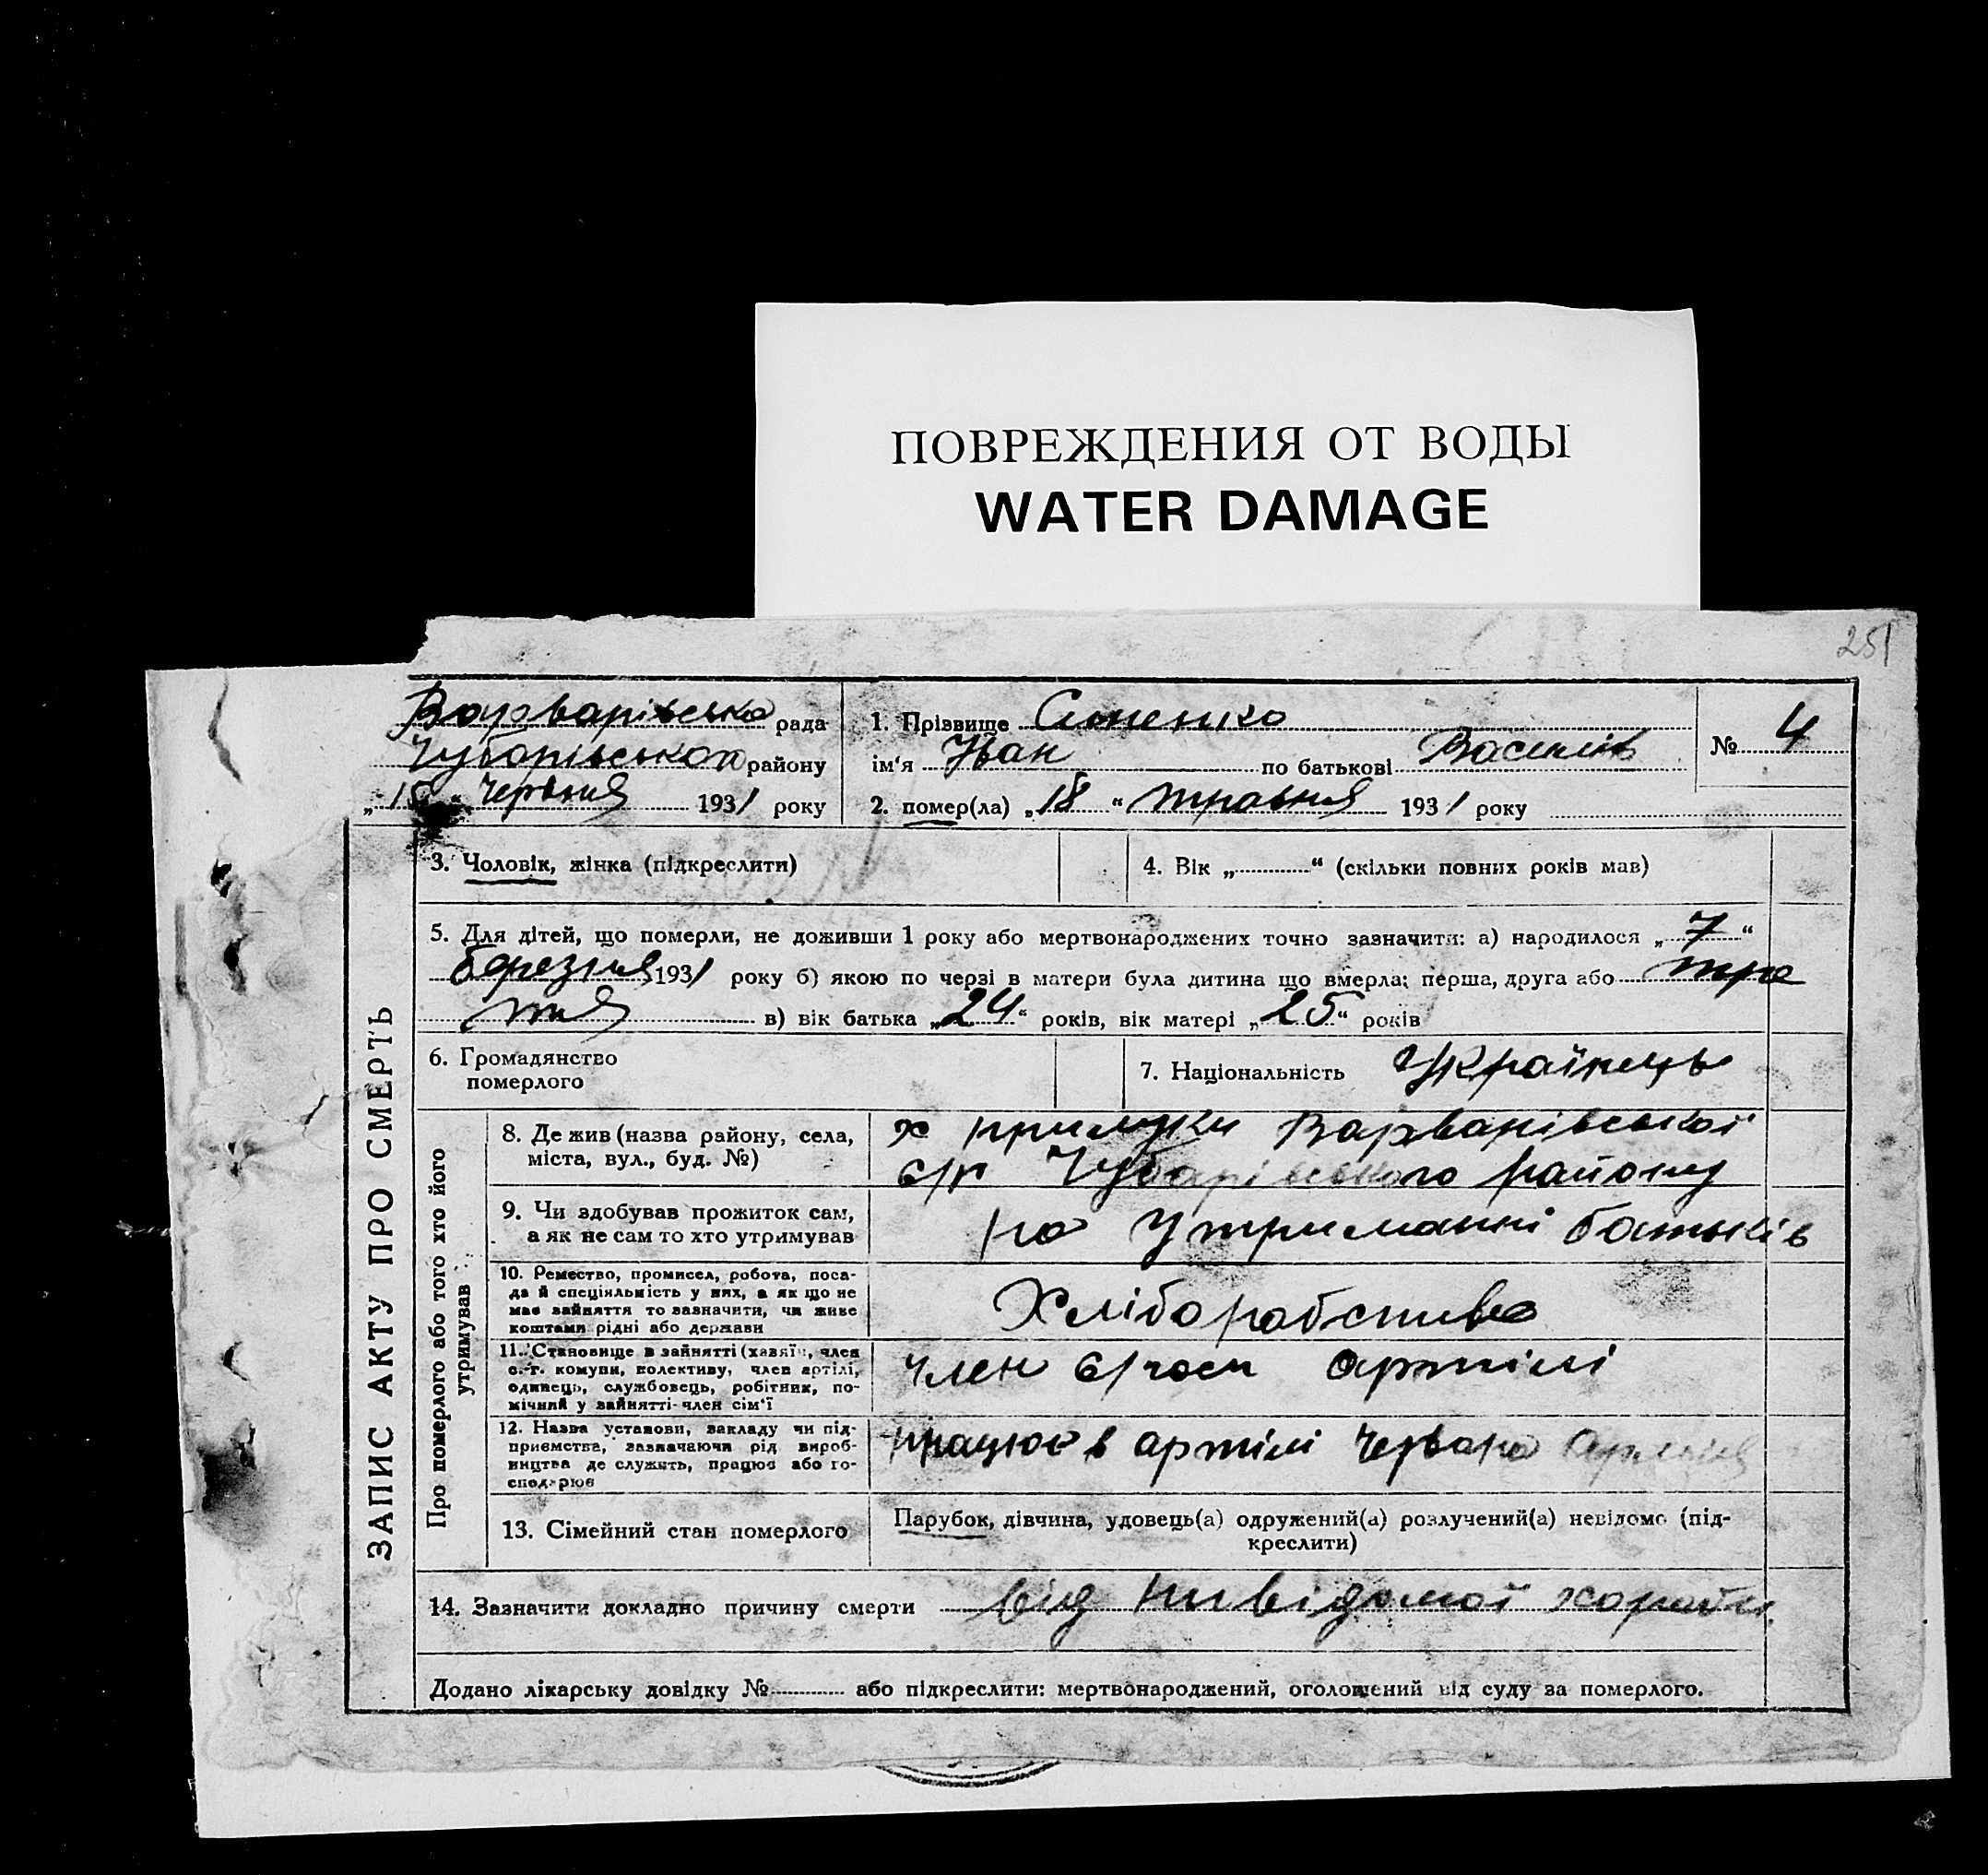 ПОВРЕЖДЕНИЯ ОТ ВОДЫ
WATER DAMAGE
251
Варварівська рада
Чубарівського району
„15“ Червня 1931 року
1. Прізвище
ім'я Іван по батькові Василів
№ 4
2. помер(ла) „18“ травня 1931 року
ЗАПИС АКТУ ПРО СМЕРТЬ
3. Чоловік, жінка (підкреслити)
4. Вік „ “ (скільки повних років мав)
5. Для дітей, що померли, не доживши 1 року або мертвонароджених точно зазначити: а) народилося „7“
березня 1931 року б) якою по черзі в матери була дитина що вмерла: перша, друга або тре
тя в) вік батька „24“ років, вік матері „25“ років
6. Громадянство
померлого
7. Національність Українець
Про померлого або того хто його
утримував
8. Де жив (назва району, села,
міста, вул., буд. №)
х Прилуки Варварівської
с/р Чубарівського району
9. Чи здобував прожиток сам,
а як не сам то хто утримував
на утриманні батьків
10. Ремество, промисел, робота, поса-
да й спеціяльність у них, а як що не
має зайняття то зазначити, чи живе
коштами рідні або держави
Хліборобство
11. Становище в зайнятті (хазяїн, член
с.-г. комуни, колективу, член артілі,
одинець, службовець, робітник, по-
мічний у зайнятті-член сім'ї
член с/госп артілі
12. Назва установи, закладу чи під-
приємства, зазначаючи рід вироб-
ництва де служить, працює або го-
сподарює
працює в артілі Червона Армія
13. Сімейний стан померлого
Парубок, дівчина, удовець(а) одружений(а) розлучений(а) невідомо (під-
креслити)
14. Зазначити докладно причину смерти від нивідомої
Додано лікарську довідку № або підкреслити: мертвонароджений, оголошений від суду за померлого.